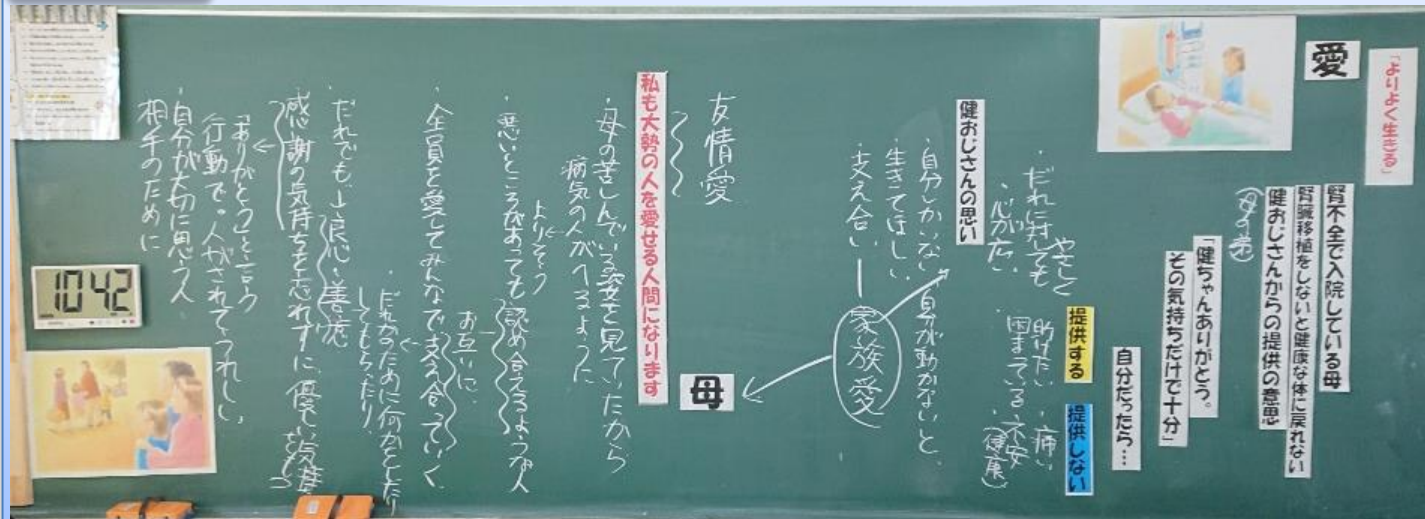 「よりよく生きる」
愛
腎不全で入院している母
腎臓移植をしないと健康な体に戻れない
健おじさんからの提供の意思
(母の弟)
「健ちゃんありがとう。
その気持ちだけで十分」
自分だったら…
提供する
提供しない
やさしく
・だれに対しても
心が広い
助けたい
困まっている
・痛い
不安
(健康)
健おじさんの思い
・自分しかいない 自分が動かないと、
生きてほしい
・支え合い
家族愛
母
友情愛
私も大勢の人を愛せる人間になります
・母の苦しんでいる姿を見ていたから
病気の人がへるように
よりそう
・悪いところがあっても認め合えるような人
お互いに、
・全員を愛してみんなで支え合っていく
だれかのために何かをしたり
してもらったり
・だれでも 良心・善意
感謝の気持ちを忘れずに、優しい気持ち
「ありがとう」と言う
行動で。人がされてうれしい
・自分が大切に思う人
相手のために
10:42